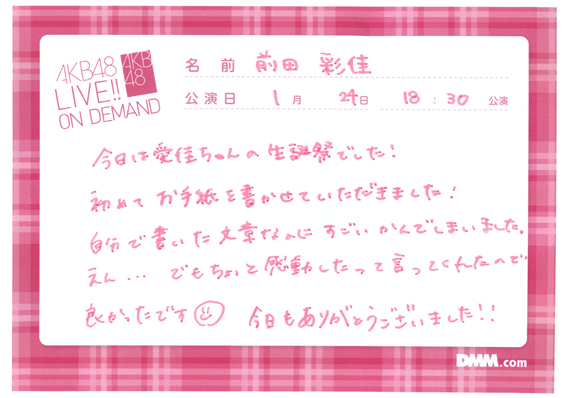 AKB48
LIVE!!
ON DEMAND
AKB
48
名 前 前田 彩佳
公演日 1月 24日 18:30 公演
今日は愛佳ちゃんの生誕祭でした!
初めてお手紙を書かせていただきました!
自分で書いた文章なのにすごいかんでしまいました。
えん... でもちょいと感動したって言ってくれたので
良かったです 今日もありがとうございました!!
DMM.com